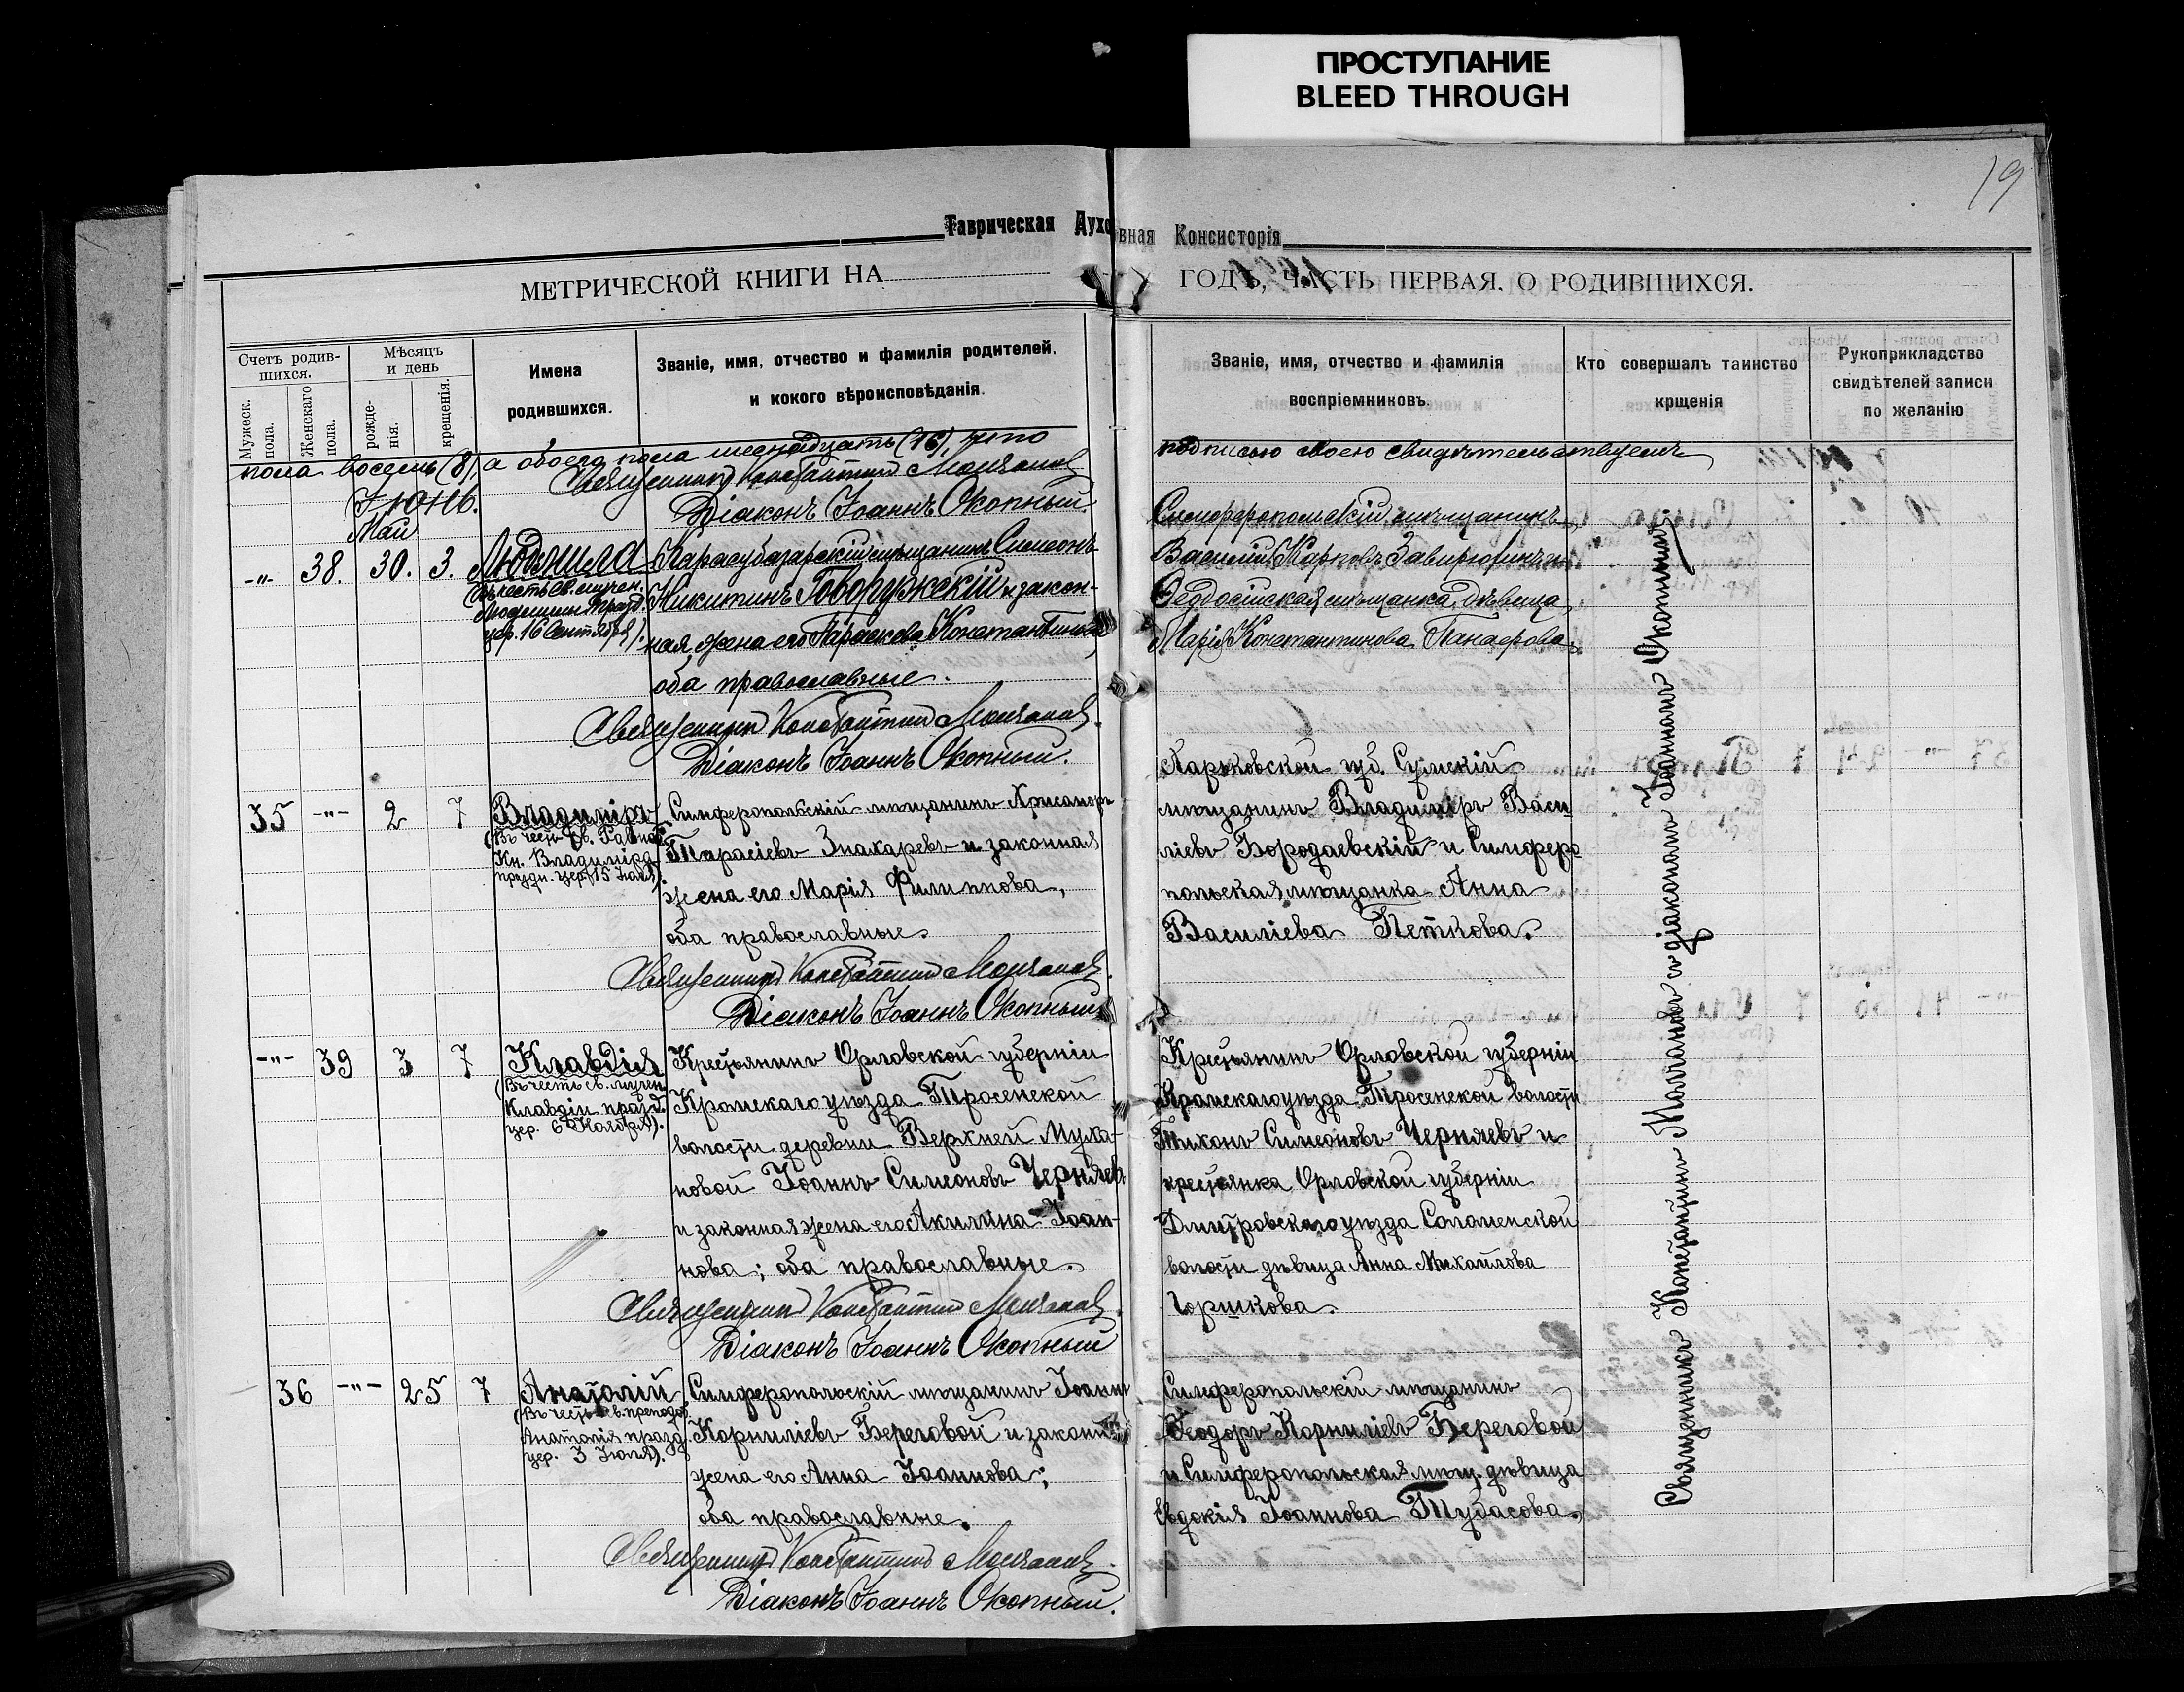 ПРОСТУПАНИЕ
BLEED THROUGH
19
Таврическая Духовная Консисторія
МЕТРИЧЕСКОЙ КНИГИ НА ГОДЪ, ЧАСТЬ ПЕРВАЯ, О РОДИВШИХСЯ.
Счетъ родив-
шихся.
Мужеск.
пола.
Женскаго
пола.
Мѣсяцъ
и день
рожде-
нія.
крещенія.
Имена
родившихся.
Званіе, имя, отчество и фамилія родителей,
и кокого вѣроисповѣданія.
Званіе, имя, отчество и фамилія
воспріемниковъ.
Кто совершалъ таинство
крщенія
Рукоприкладство
свидѣтелей записи
по желанію
пола восемь (8), а обоего пола шестнадцать (16), что
подписью своею свидѣтельствуемъ
Священникъ Константинъ Молчановъ
Діаконъ Іоаннъ Окопный.
Іюнь.
Май
-"- 38. 30. 3.
Людмила
(Въ честь св. мучен.
Людмилы празд.
цер. 16 Сентября).
Карасубазарскій мѣщанинъ Симеонъ
Никитинъ Говоружскій и закон-
ная жена его Параскева Константинова
оба православные.
Священникъ Константинъ Молчановъ.
Діаконъ Іоаннъ Окопный.
Симферопольскій мѣщанинъ
Василій Марковъ
Ѳеодосійская мѣщанка, дѣвица
Марія Константинова
35 -"- 2 7
Владиміръ
(Въ честь Св. Равноап.
Кн. Владиміра
праздн. цер. 15 Іюля).
Симферопольскій мѣщанинъ Хрисанфъ
Тарасіевъ Знахаревъ и законная
жена его Марія Филиппова,
оба православные.
Священникъ Константинъ Молчановъ.
Діаконъ Іоаннъ Окопный
Харьковской губ. Сумскій
мѣщанинъ Владиміръ Васи
ліевъ Бородаевскій и Симферо
польская мѣщанка Анна
Василіева Петкова.
-"- 39 3 7
Клавдія
(Въ честь св. мучен.
Клавдіи празд.
цер. 6 Ноября).
Крестьянинъ Орловской губерніи
Кромскаго уѣзда Тросенской
волости деревни Верхней Муха-
новой Іоаннъ Симеоновъ Черняевъ
и законная жена его Акилина Іоан-
нова; оба православные.
Священникъ Константинъ Молчановъ.
Діаконъ Іоаннъ Окопный
Крестьянинъ Орловской губерніи
Кромскаго уѣзда Тросенской волости
Тихонъ Симеоновъ Черняевъ и
крестьянка Орловской губерніи
Дмитровскаго уѣзда Соломенской
волости дѣвица Анна Михаилова
Горшкова.
36 -"- 25 7
Анатолій
(Въ честь св. преподоб.
Анатолія празд.
цер. 3 Іюля).
Симферопольскій мѣщанинъ Іоаннъ
Корниліевъ Береговой и законн.
жена его Анна Іоаннова;
оба православные.
Священникъ Константинъ Молчановъ.
Діаконъ Іоаннъ Окопный.
Симферопольскій мѣщанинъ
Ѳеодоръ Корниліевъ Береговой
и Симферопольская мѣщ. дѣвица
Евдокія Іоаннова Тубасова.
Священникъ Константинъ Молчановъ съ діакономъ Іоанномъ Окопнымъ.